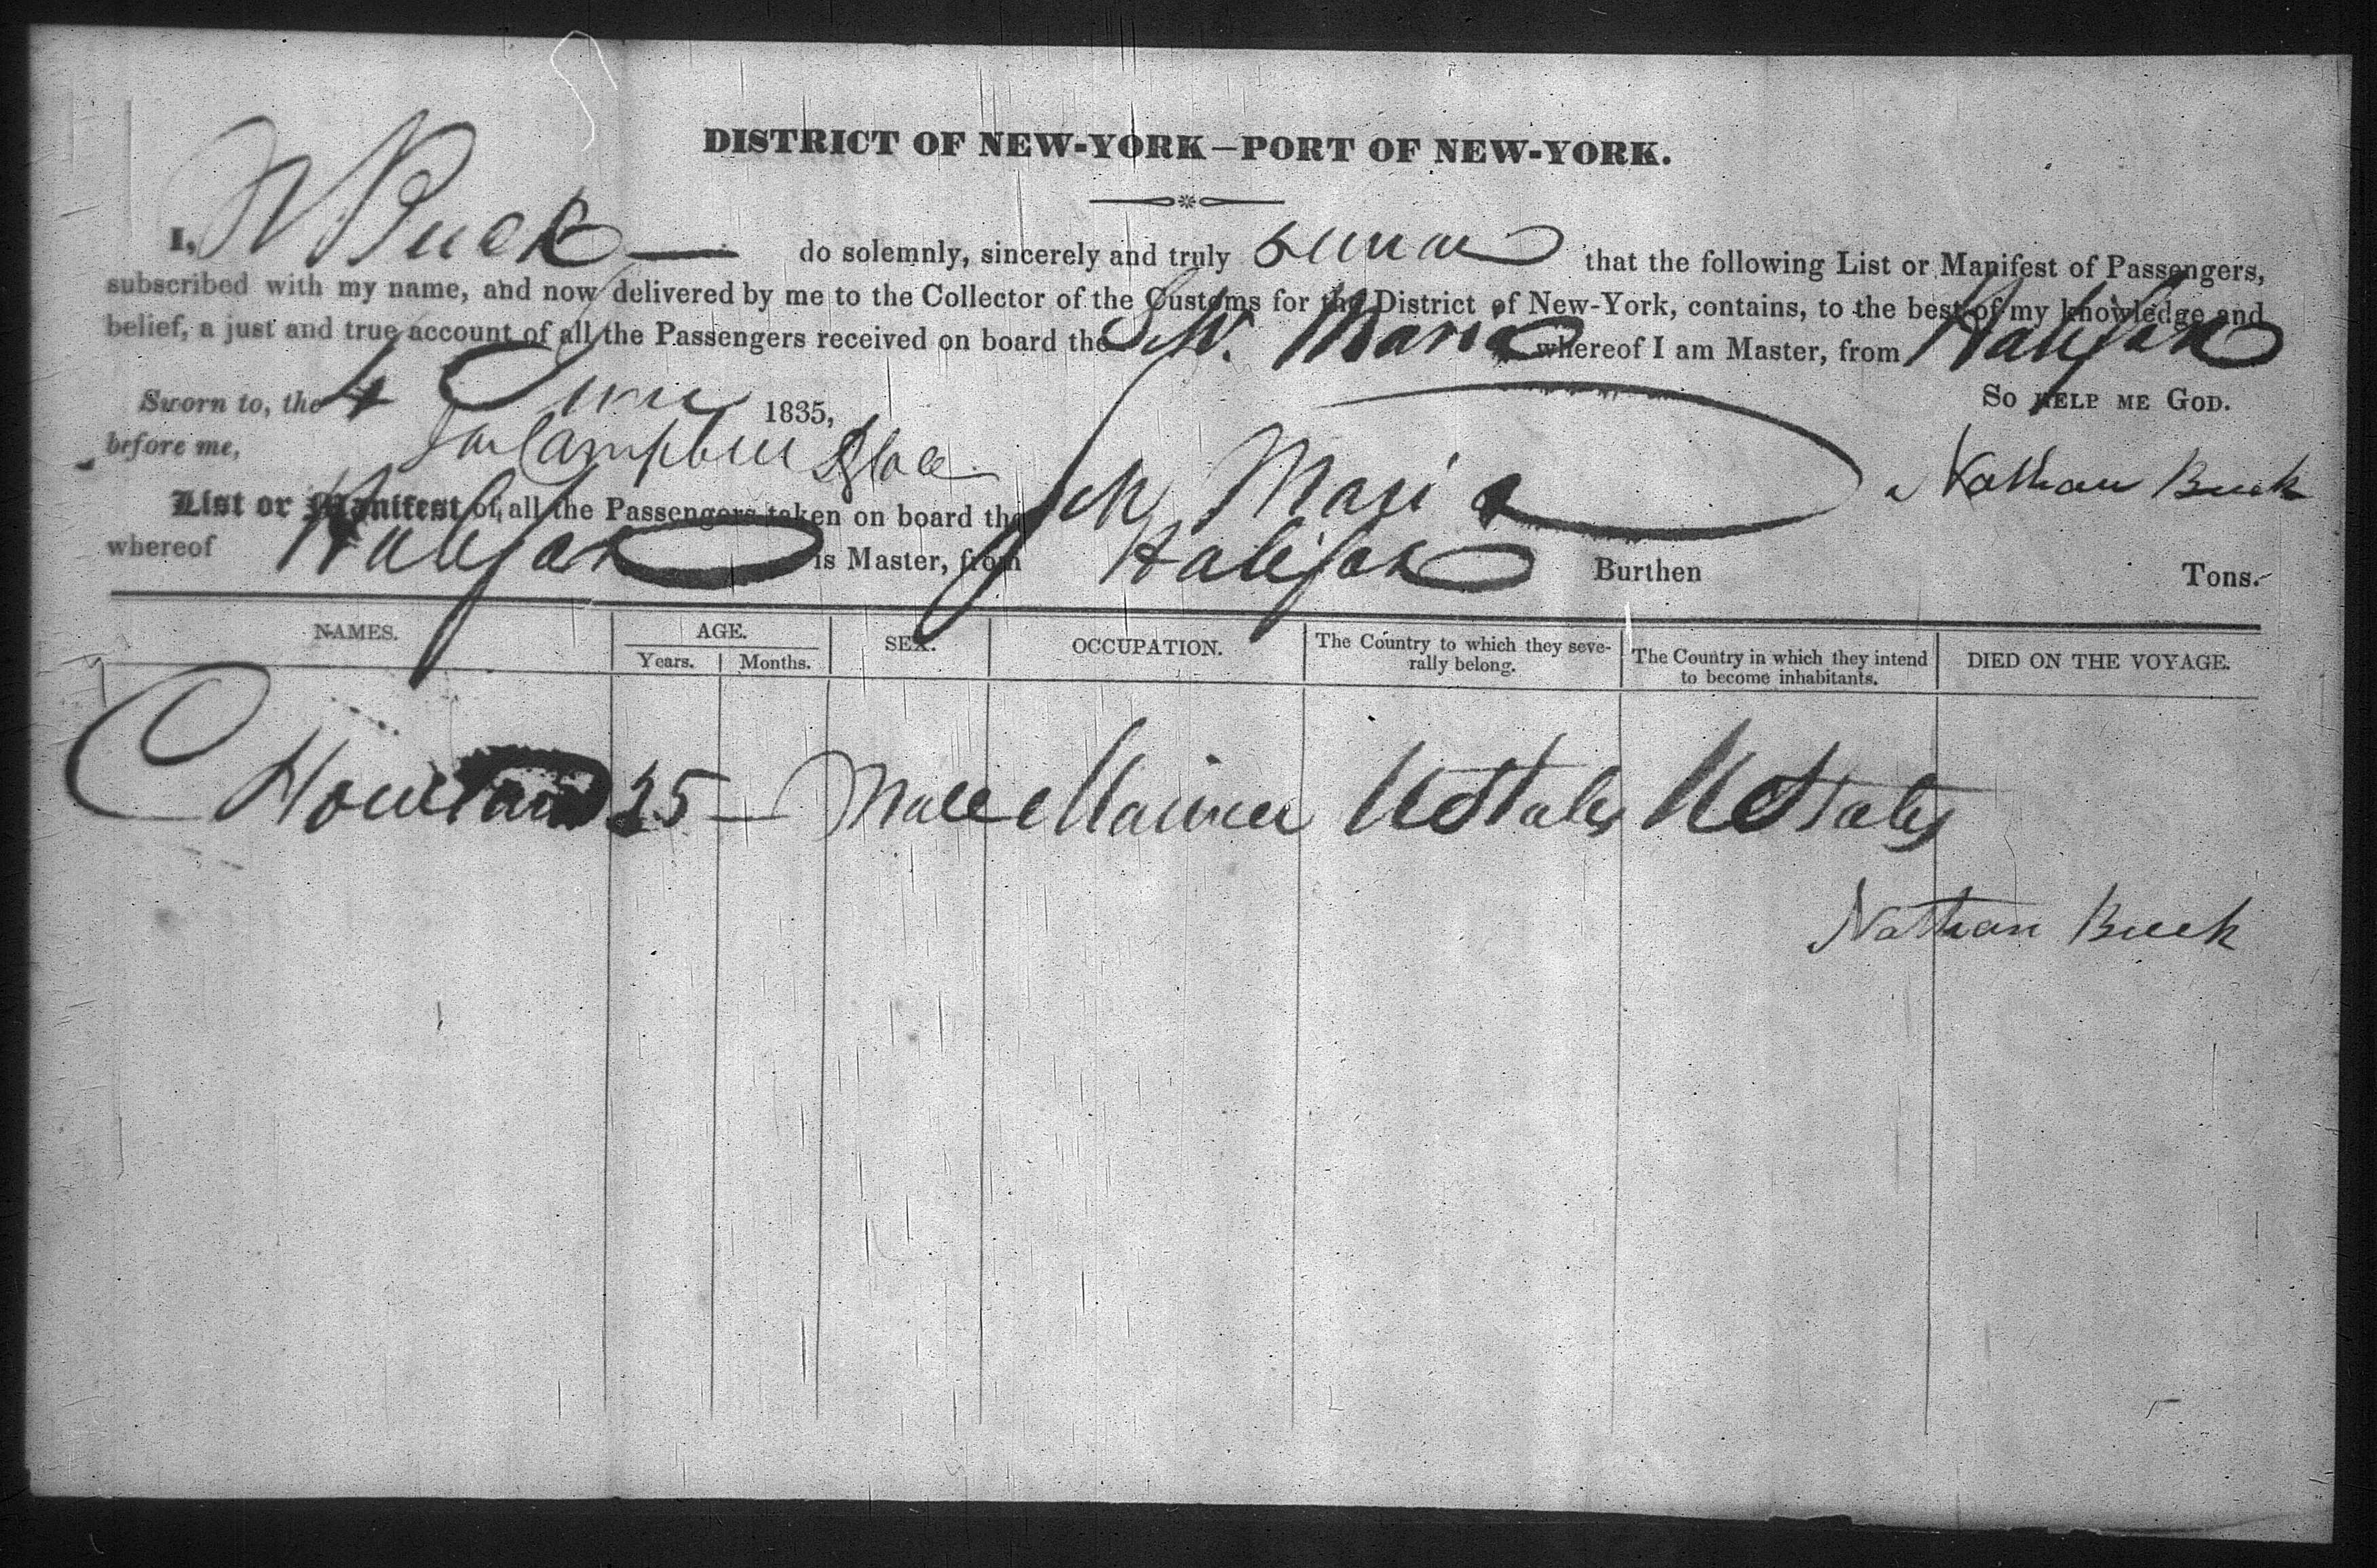 DISTRICT OF NEW-YORK—PORT OF NEW-YORK.
I, N Buck — do solemnly, sincerely and truly swear that the following List or Manifest of Passengers,
subscribed with my name, and now delivered by me to the Collector of the Customs for the District of New-York, contains, to the best of my knowledge and
belief, a just and true account of all the Passengers received on board the Sch. Maria whereof I am Master, from Halifax
Sworn to, the 4 June 1835, So HELP ME GOD.
before me, Campbell Nathan Buck
List or Manifest of all the Passengers taken on board the Sch Maria
whereof Halifax is Master, from Halifax Burthen Tons.
NAMES. AGE. SEX. OCCUPATION. The Country to which they seve-
rally belong. The Country in which they intend
to become inhabitants. DIED ON THE VOYAGE.
Years. Months.
C 25 — Male Mariner U States U States
Nathan Buck